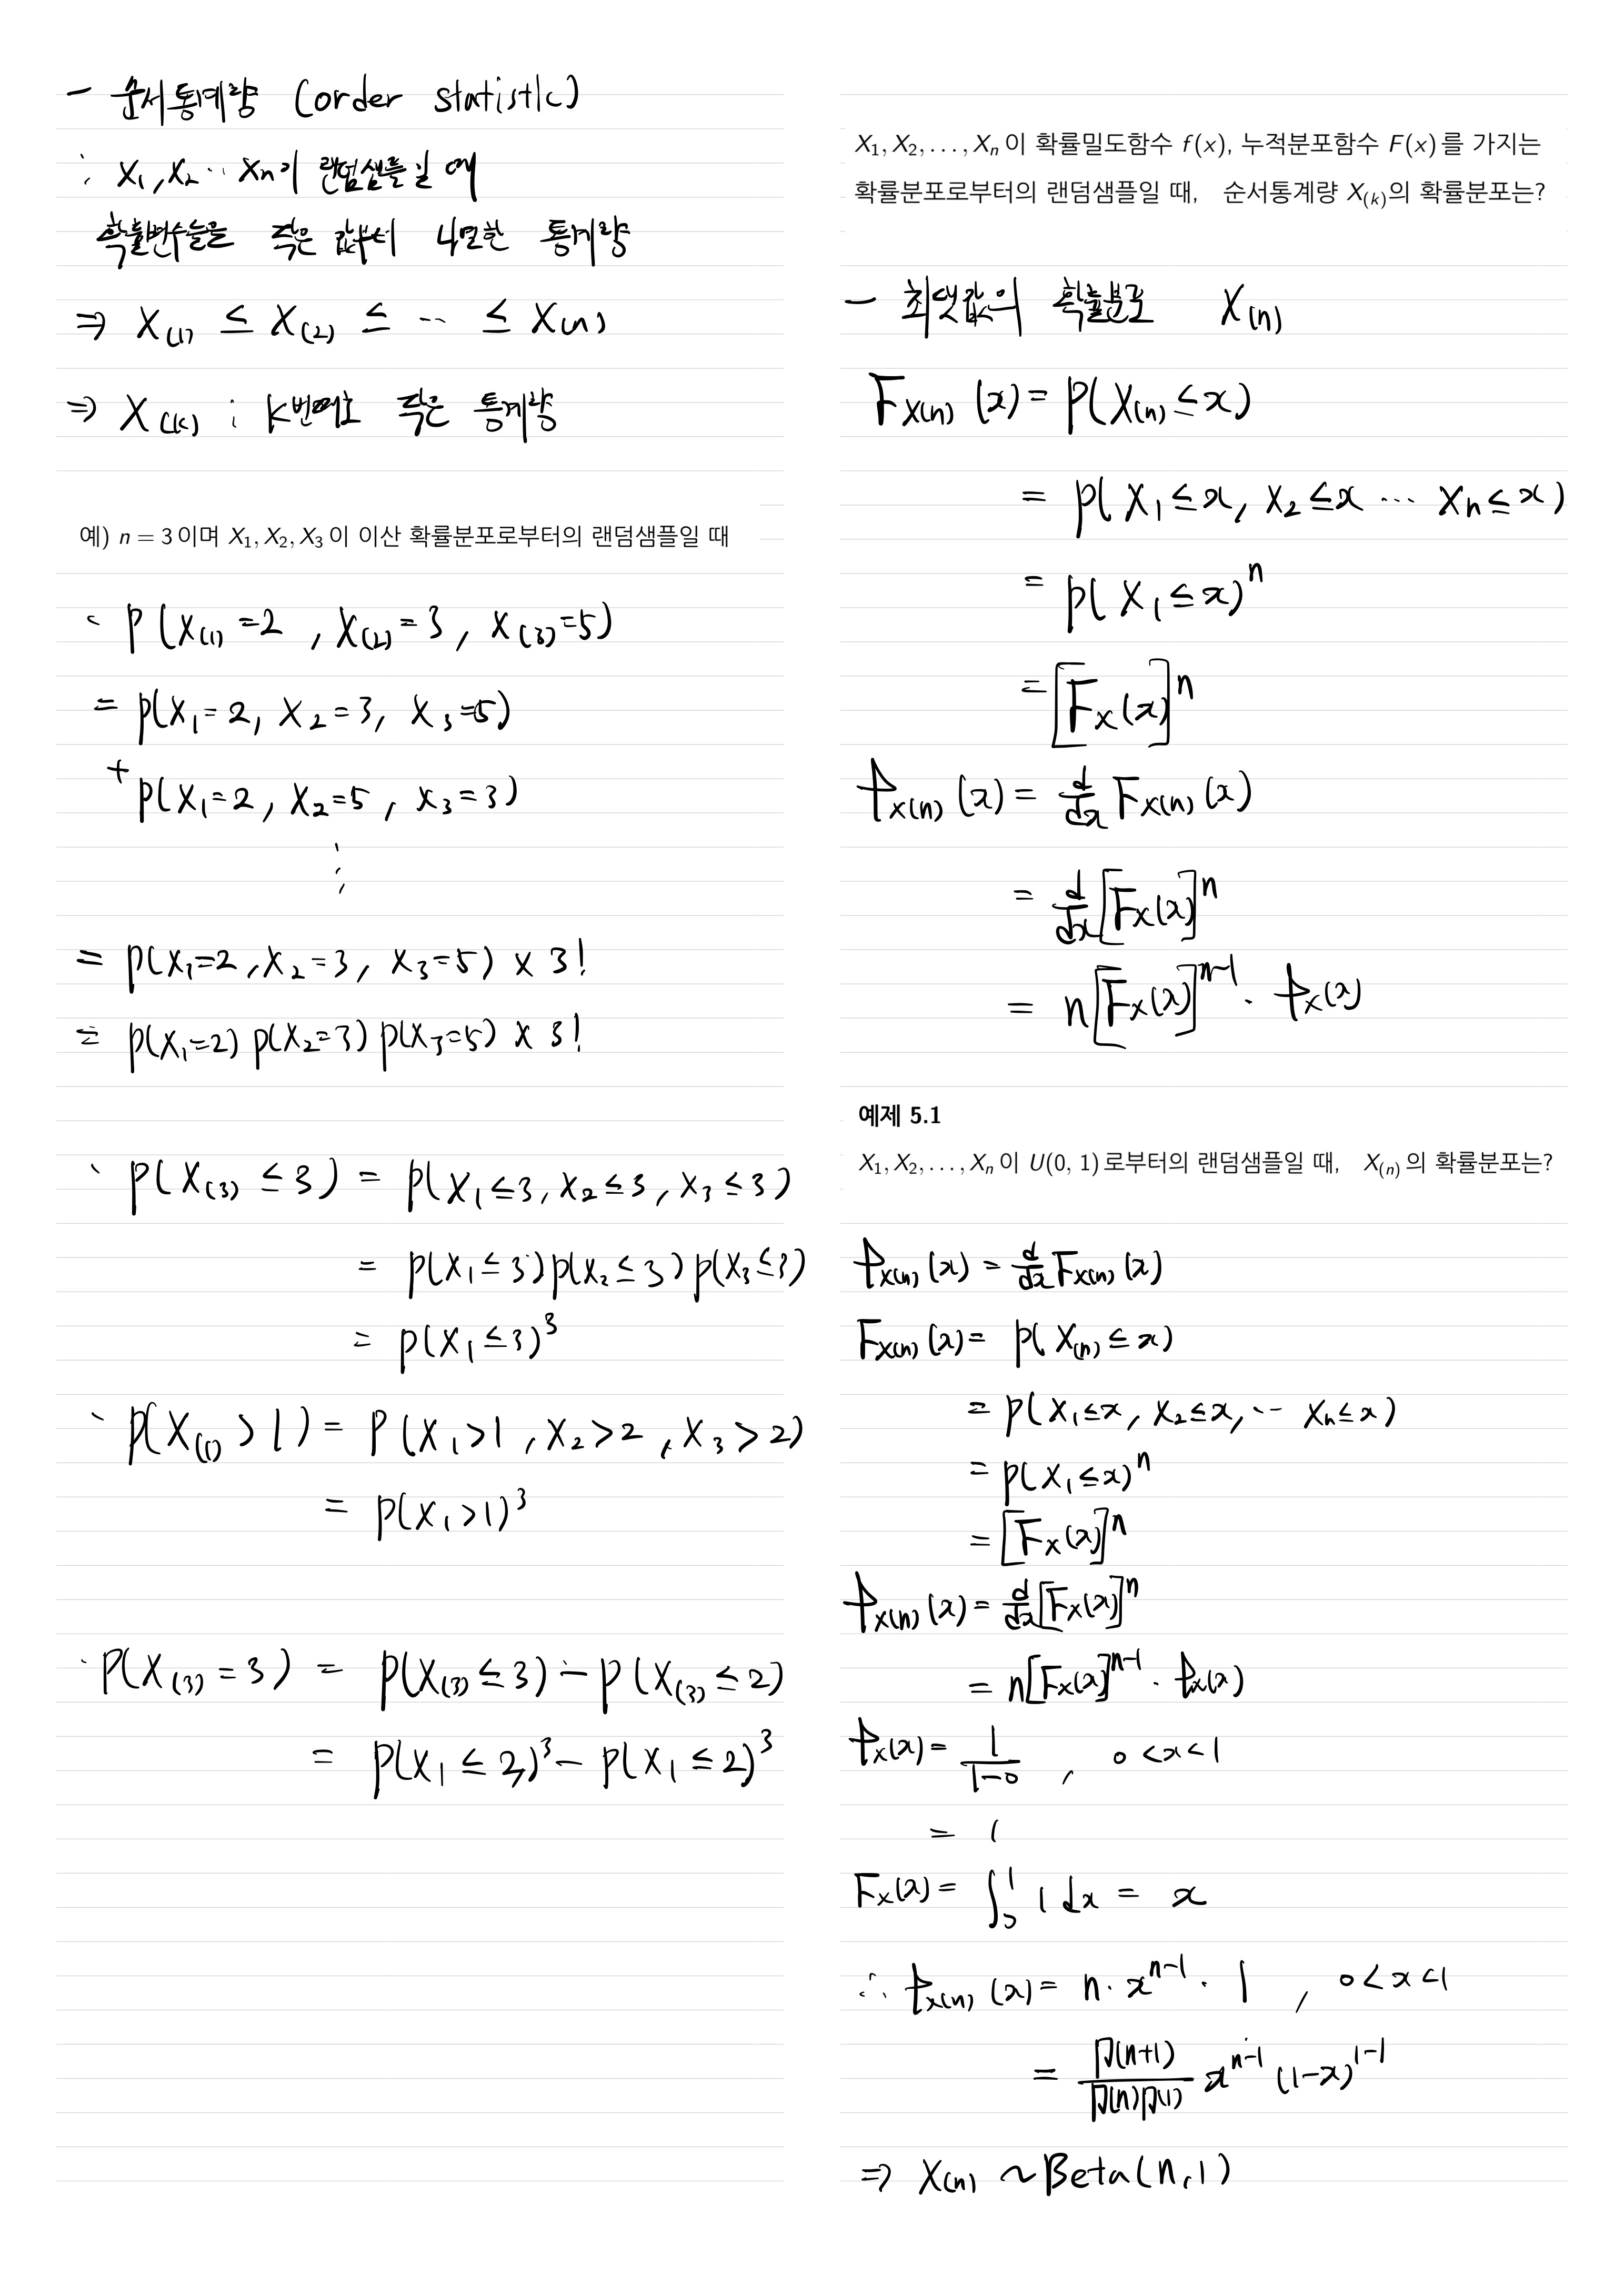 - 순서통계량 (order statistic)
: X₁, X₂ ‥ Xn이 랜덤샘플일 때
확률변수들을 작은 값부터 나열한 통계량
⇒ X₍₁₎ ≤ X₍₂₎ ≤ ‥ ≤ X₍n₎
⇒ X₍k₎ : k번째로 작은 통계량
예) n = 3이며 X₁, X₂, X₃이 이산 확률분포로부터의 랜덤샘플일 때
· P(X₍₁₎ = 2, X₍₂₎ = 3, X₍₃₎ = 5)
= P(X₁ = 2, X₂ = 3, X₃ = 5)
+ P(X₁ = 2, X₂ = 5, X₃ = 3)
⋮
= P(X₁ = 2, X₂ = 3, X₃ = 5) × 3!
= P(X₁ = 2) P(X₂ = 3) P(X₃ = 5) × 3!
· P(X₍₃₎ ≤ 3) = P(X₁ ≤ 3, X₂ ≤ 3, X₃ ≤ 3)
= P(X₁ ≤ 3) P(X₂ ≤ 3) P(X₃ ≤ 3)
= P(X₁ ≤ 3)³
· P(X₍₁₎ > 1) = P(X₁ > 1, X₂ > 2, X₃ > 2)
= P(X₁ > 1)³
· P(X₍₃₎ = 3) = P(X₍₃₎ ≤ 3) - P(X₍₃₎ ≤ 2)
= P(X₁ ≤ 3)³ - P(X₁ ≤ 2)³
X₁, X₂, . . . , Xn이 확률밀도함수 f(x), 누적분포함수 F(x)를 가지는
확률분포로부터의 랜덤샘플일 때, 순서통계량 X₍k₎의 확률분포는?
- 최댓값의 확률분포 X(n)
F_X(n) (x) = P(X(n) ≤ x)
= P(X₁ ≤ x, X₂ ≤ x ⋯ Xn ≤ x)
= P(X₁ ≤ x)ⁿ
= [F_X(x)]ⁿ
f_X(n) (x) = d/dx F_X(n) (x)
= d/dx [F_X(x)]ⁿ
= n[F_X(x)]ⁿ⁻¹ · f_X(x)
예제 5.1
X₁, X₂, . . . , Xn이 U(0, 1)로부터의 랜덤샘플일 때, X(n)의 확률분포는?
f_X(n) (x) = d/dx F_X(n) (x)
F_X(n) (x) = P(X(n) ≤ x)
= P(X₁ ≤ x, X₂ ≤ x, ‥ Xn ≤ x)
= P(X₁ ≤ x)ⁿ
= [F_X(x)]ⁿ
f_X(n) (x) = d/dx [F_X(x)]ⁿ
= n[F_X(x)]ⁿ⁻¹ · f_X(x)
f_X(x) = 1/(1-0) , 0 < x < 1
= 1
F_X(x) = ∫₀¹ 1 dx = x
∴ f_X(n) (x) = n · xⁿ⁻¹ · 1 , 0 < x < 1
= Γ(n+1)/Γ(n)Γ(1) xⁿ⁻¹ (1-x)¹⁻¹
⇒ X(n) ~ Beta(n, 1)